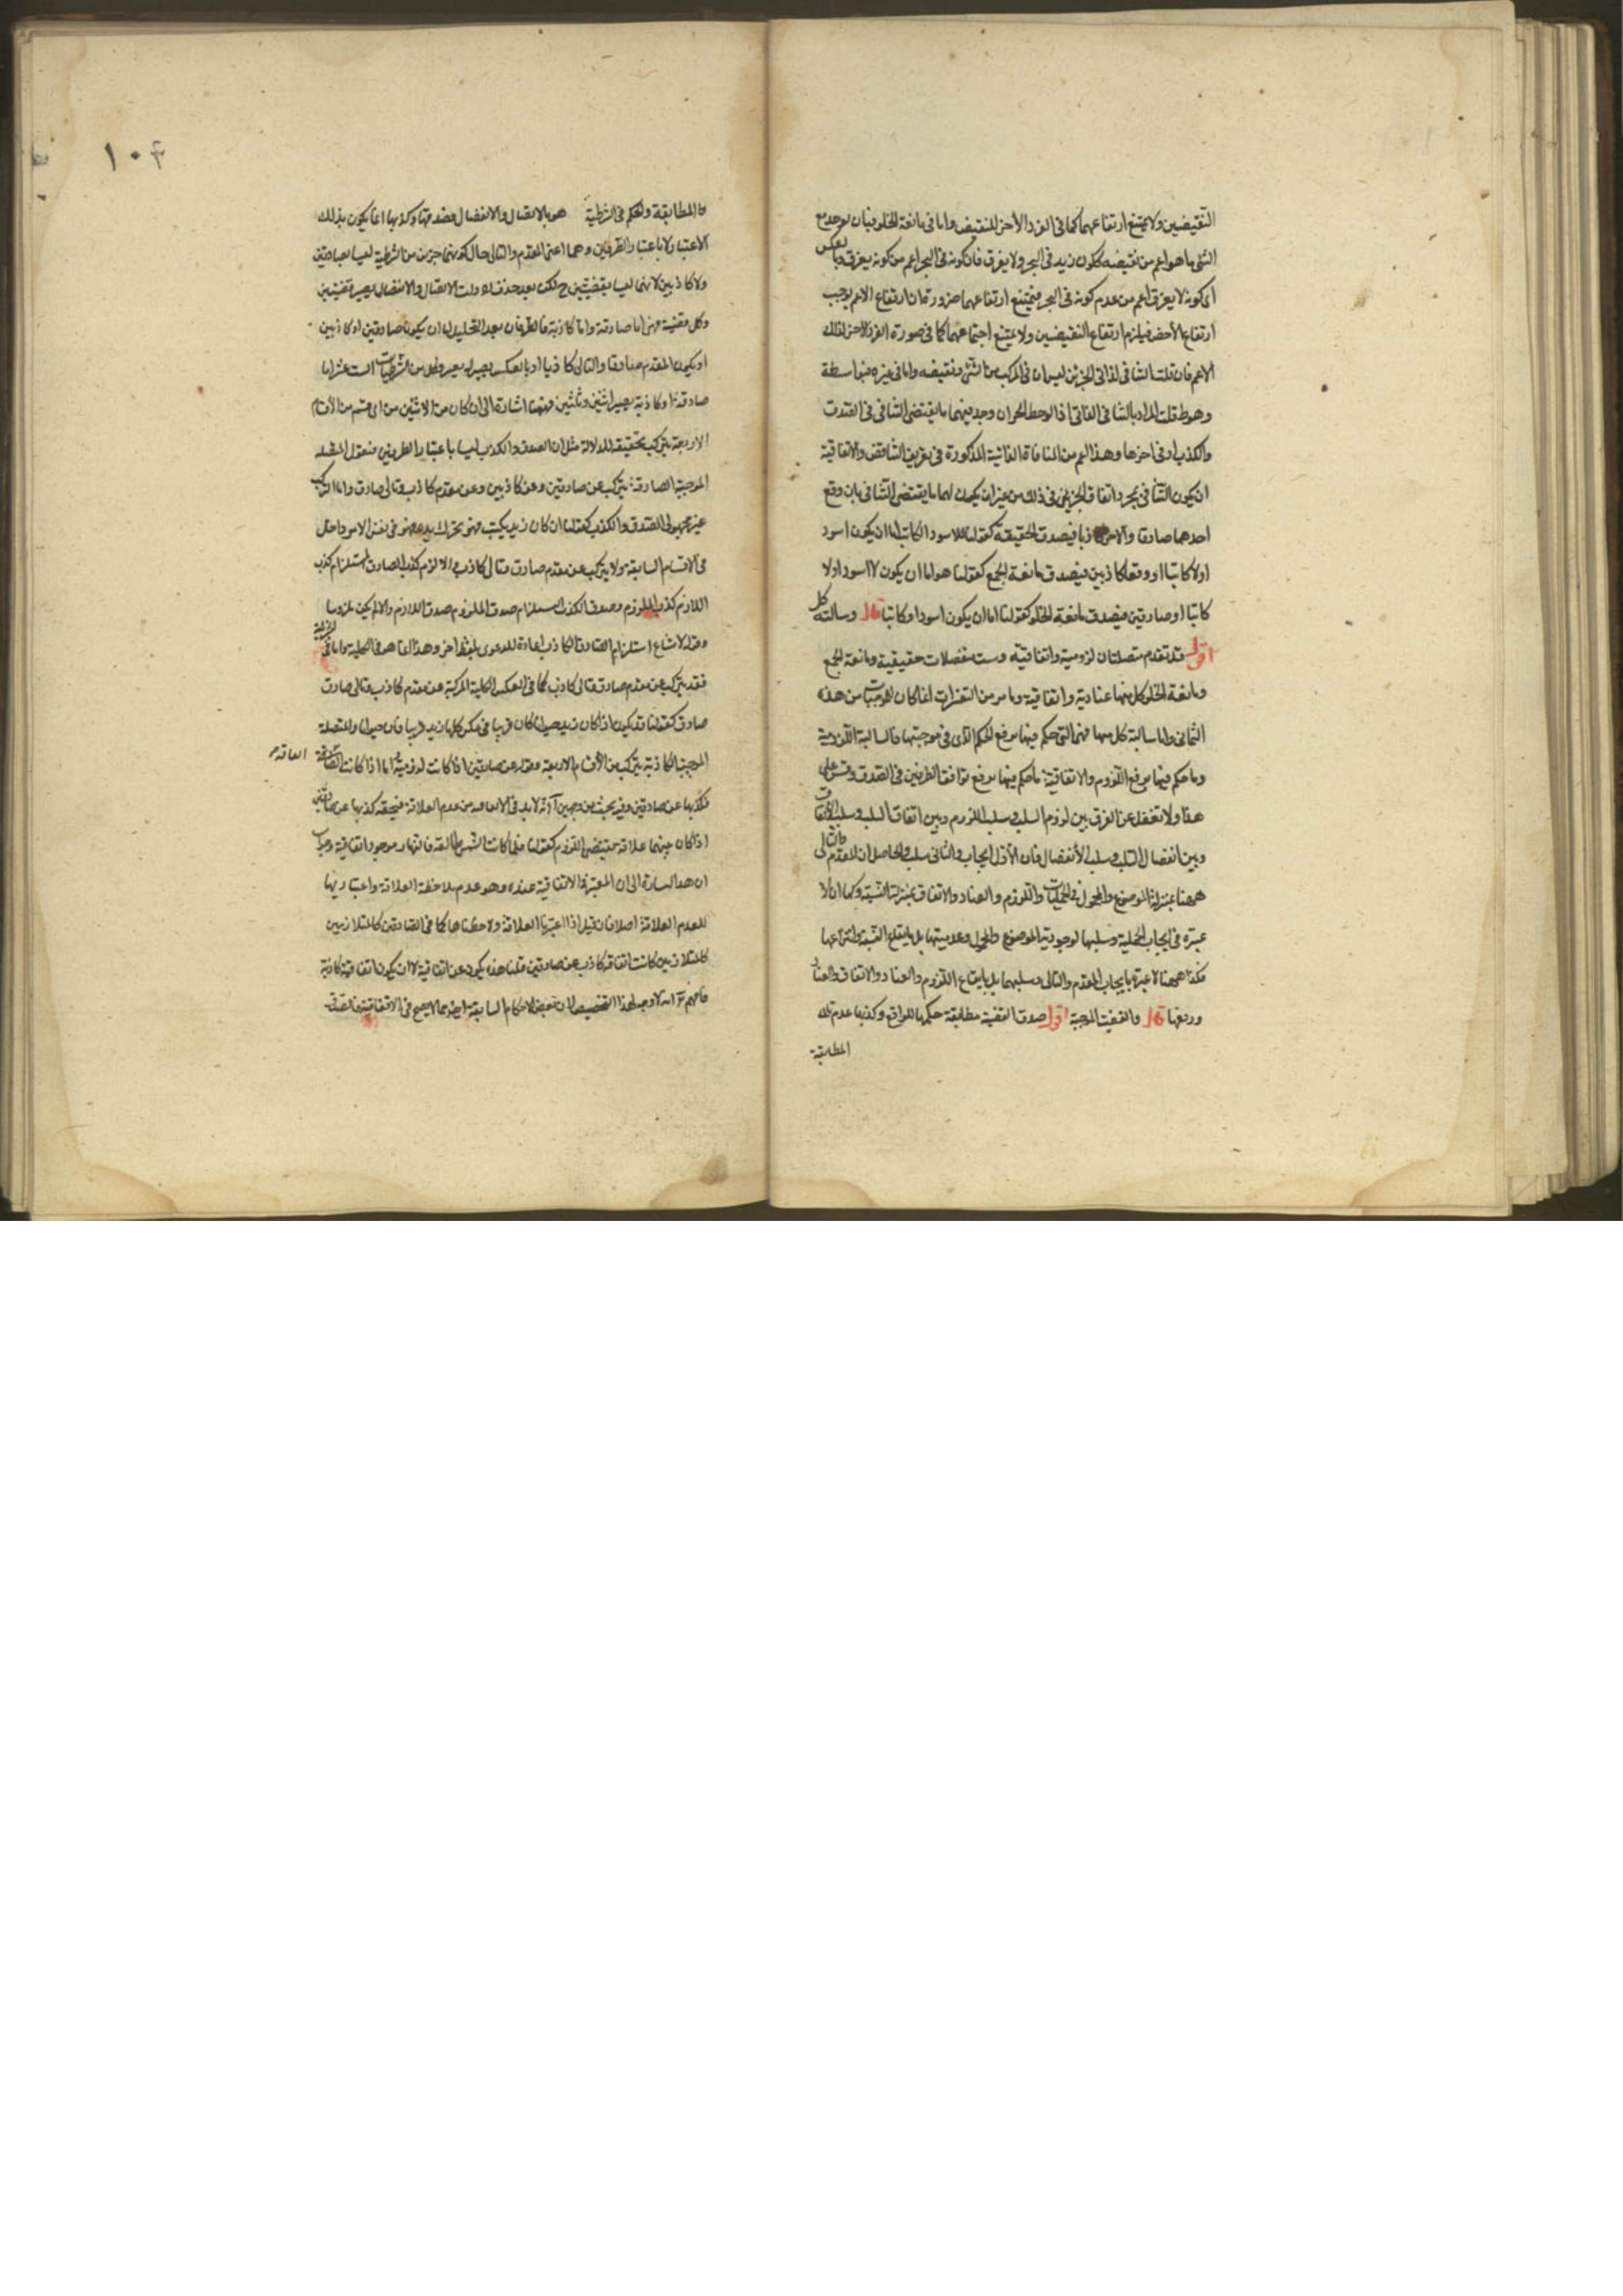 النقيضين ولا يمتنع ارتفاعهما كما في الفرد الأخر للنقيض واما في مانعة الخلو فبان يوجد مع
الشئ ما هو اعم من نقيضه ككون زيد في البحر ولا يغرق فان كونه في البحر اعم من كونه يغرق وبالعكس
اى كونه لا يغرق اعم من عدم كونه في البحر فيمتنع ارتفاعهما ضرورة ان ارتفاع الاعم يوجب
ارتفاع الأخص فيلزم ارتفاع النقيضين ولا يمتنع اجتماعهما كما في صورة الفرد الاخر لذلك
الاعم فان قلت التنافى لذاتى الجزئين ليس الا في المركب من الشئ ونقيضه واما في غيره فبواسطة
وهو قلت المراد بالتنافى الذاتى اذا لوحظ الجزآن وجد بينهما ما يقتضى التنافى في الصدق
والكذب او في احدهما وهذا اعم من المنافاة الذاتية المذكورة في تعريف التناقض والاتفاقية
ان يكون التنافى بمجرد اتفاق الجزئين في ذلك من غير ان يكون لهما ما يقتضى التنافى بان وقع
احدهما صادقا والآخر كاذبا فيصدق الحقيقية كقولنا للاسود الكاتب اما ان يكون اسود
اولا كاتبا او وقعا كاذبين فيصدق مانعة الجمع كقولنا هو اما ان يكون لا اسود اولا
كاتبا او صادقين فيصدق مانعة الخلو كقولنا اما ان يكون اسود او كاتبا قال وسالبة كل
اقول قد تقدم متصلتان لزومية واتفاقية وست منفصلات حقيقية ومانعة الجمع
ومانعة الخلو كل منها عنادية واتفاقية وما مر من التعريفات انما كان للموجبات من هذه
الثمانى واما سالبة كل منها فهى التى حكم فيها برفع الحكم الذى في موجبتها فالسالبة اللزومية
وما حكم فيها برفع اللزوم والاتفاقية ما حكم فيها برفع توافق الطرفين في الصدق وقس على
هذا ولا تغفل عن الفرق بين لزوم السلب وسلب اللزوم وبين اتفاق السلب وسلب الاتفاق
وبين انفصال السلب وسلب الأنفصال فان الأول ايجاب والثانى سلب والحاصل ان المقدم والتالى
ههنا بمنزلة الموضوع والمحمول في الحمليات واللزوم والعناد والاتفاق بمنزلة النسبة وكما ان لا
عبرة في ايجاب الحملية وسلبها لوجودية الموضوع والمحول وعدميتها بل بايقاع النسبة وانتزاعها
فكذا ههنا لا عبرة بايجاب المقدم والتالى وسلبهما بل بايقاع اللزوم والعناد والاتفاق والعناد
ورفعها قال والقضية الموجبة اقول صدق القضية مطابقة حكمها للواقع وكذبها عدم تلك
المطابقة
١٠٤
المطابقة والحكم في الشرطية هو بالاتصال والانفصال فصدقها وكذبها انما يكون بذلك
الاعتبار لا باعتبار الطرفين وهما اعنى المقدم والتالى حال كونهما جزئين من الشرطية ليسا بصادقين
ولا كاذبين لانهما ليسا بقضيتين ح لكن بعد حذف ادوات الاتصال والانفصال يصير قضيتين
وكل قضية فهى اما صادقة واما كاذبة فالطرفان بعد التحليل اما ان يكونا صادقين او كاذبين
او يكون المقدم صادقا والتالى كاذبا او بالعكس
صادقة او كاذبة يصير اثنين وثلثين فههنا اشارة الى ان كان من الاثنين من اى قسم من الأقسام
الاربعة يتركب مثل ان الصدق والكذب ليسا باعتبار الطرفين فنقول المتصلة
الموجبة الصادقة يتركب عن صادقين وعن كاذبين وعن مقدم كاذب وتالى صادق واما التركب
عن مجهولى الصدق والكذب كقولنا ان كان زيد يكتب فهو يحرك يده فهو في نفس الامر داخل
في الاقسام السابقة ولا يتركب عن مقدم صادق وتالى كاذب والا لزم كذب الصادق لاستلزام كذب
اللازم كذب الملزوم وصدق الكاذب لاستلزام صدق الملزوم صدق اللازم والا لم يكن ملزوما
وقوله لامتناع استلزام الصادق الكاذب اعادة للدعوى بلفظ اخر وهذا انما هو في الكلية واما في الجزئية
فقد يتركب عن مقدم صادق وتالى كاذب كما في العكس الكلية المركبة عن مقدم كاذب وتالى صادق
صادق كقولنا قد يكون اذا كان زيد حيوانا كان فرسا في عكس كلما كان زيد فرسا كان حيوانا والمتصلة
الموجبة الكاذبة يتركب من الأقسام الاربعة وقوله عن صادقين اذا كانت لزومية اما اذا كانت اتفاقية
فكذبها عن صادقين وفيه بحث من وجهين آ انه لا بد في الاتفاقية من عدم العلاقة فيتحقق كذبها عن صادقين
اذا كان بينهما علاقة يقتضى اللزوم كقولنا كلما كانت الشمس طالعة فالنهار موجود اتفاقية وجوابه
ان هذا اشارة الى ان المعتبر في الاتفاقية عنده وهو عدم ملاحظة العلاقة واعتبارها
لعدم العلاقة اصلا فان قيل اذا اعتبرنا العلاقة ولاحظناها كما في الصادقين كالمتلازمين
كالمتلازمين كانت اتفاقية كاذبة عن صادقين قلنا هذه يكون غير اتفاقية لا ان يكون اتفاقية كاذبة
فافهم ب انه لا وجه لهذا التخصيص لان بعض الاحكام السابقة ايضا مما لا يصح في الاتفاقية